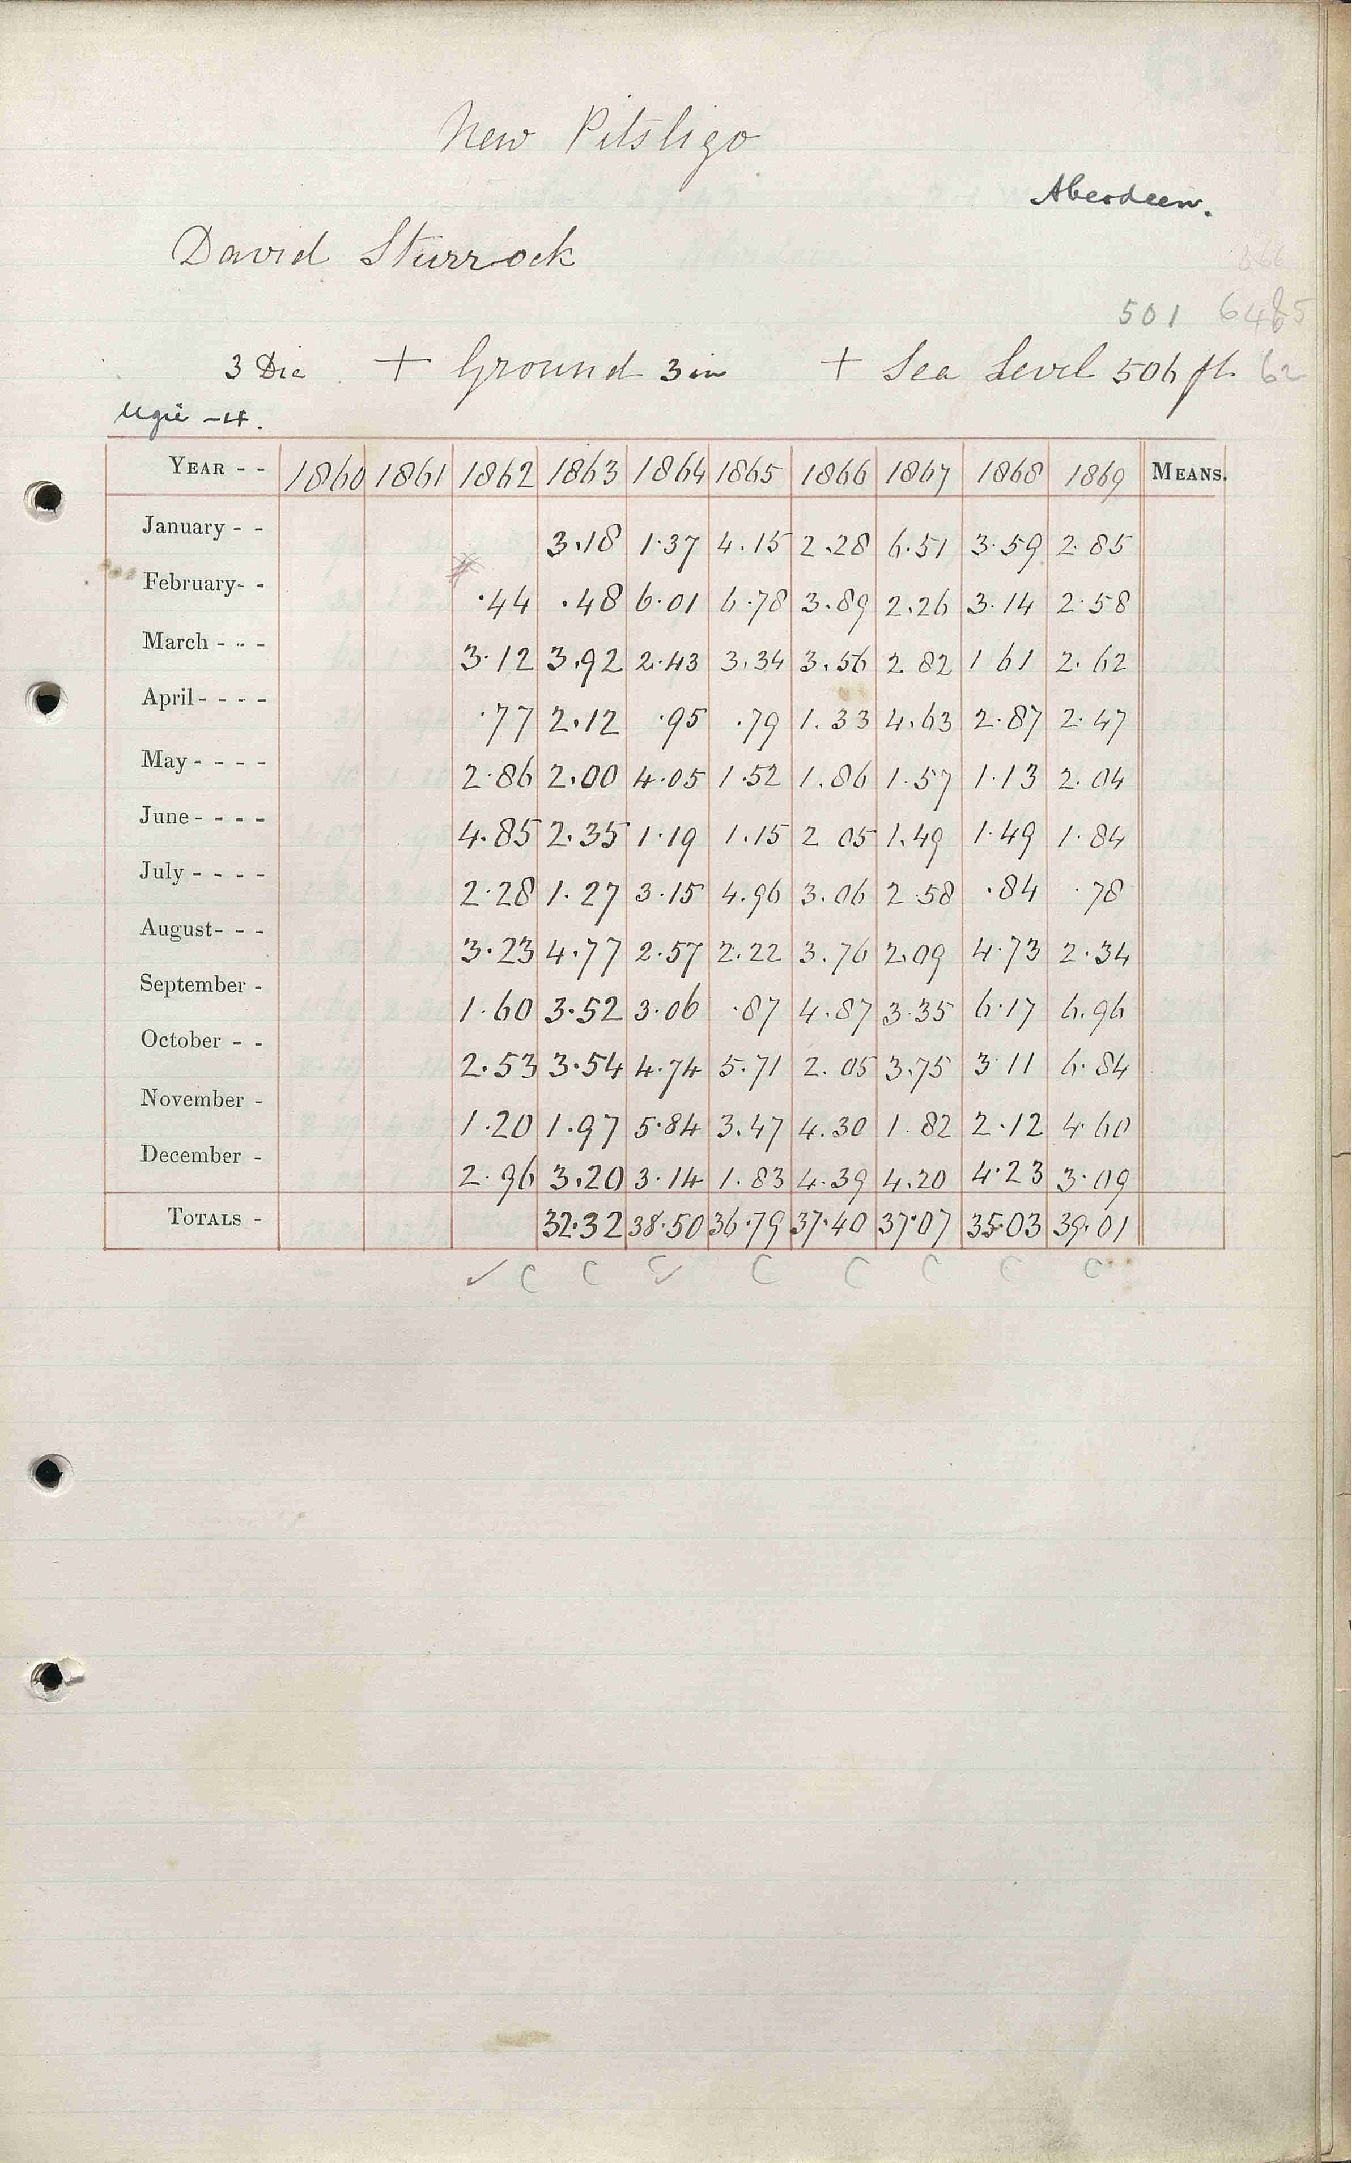 New Pitsligo
Aberdeen.
David Sturrock
501 6485
3 Dia + Ground 3 in + Sea Level 506 ft 62
Ugie - 4.
YEAR - - 1860 1861 1862 1863 1864 1865 1866 1867 1868 1869 MEANS.
January - - 3.18 1.37 4.15 2.28 6.51 3.59 2.85
February- - .44 .48 6.01 6.78 3.89 2.26 3.14 2.58
March - - - 3.12 3.92 2.43 3.34 3.56 2.82 1 61 2.62
April- - - - .77 2.12 .95 .79 1.33 4.63 2.87 2.47
May- - - - 2.86 2.00 4.05 1.52 1.86 1.57 1.13 2.04
June- - - - 4.85 2.35 1.19 1.15 2 05 1.49 1.49 1.84
July - - - - 2.28 1.27 3.15 4.96 3.06 2.58 .84 .78
August- - - 3.23 4.77 2.57 2.22 3.76 2.09 4.73 2.34
September - 1.60 3.52 3.06 .87 4.87 3.35 6.17 6.96
October - - 2.53 3.54 4.74 5.71 2.05 3.75 3 11 6.84
November - 1.20 1.97 5.84 3.47 4.30 1.82 2.12 4.60
December - 2.96 3.20 3.14 1.83 4.39 4.20 4.23 3.09
TOTALS - 32.32 38.50 36.79 37.40 37.07 35.03 39.01
✓ C C C ✓ C C C C C